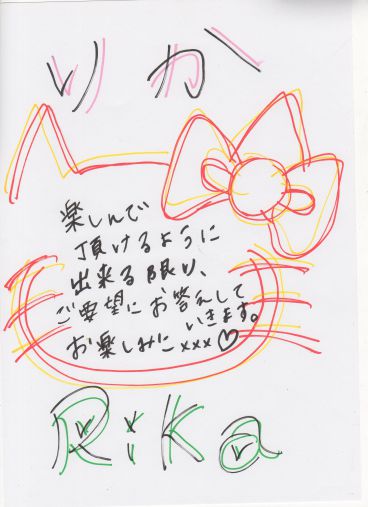 りか
楽しんで
頂けるように
出来る限り、
ご要望にお答えして
いきます。
お楽しみに xxx♡
Rika